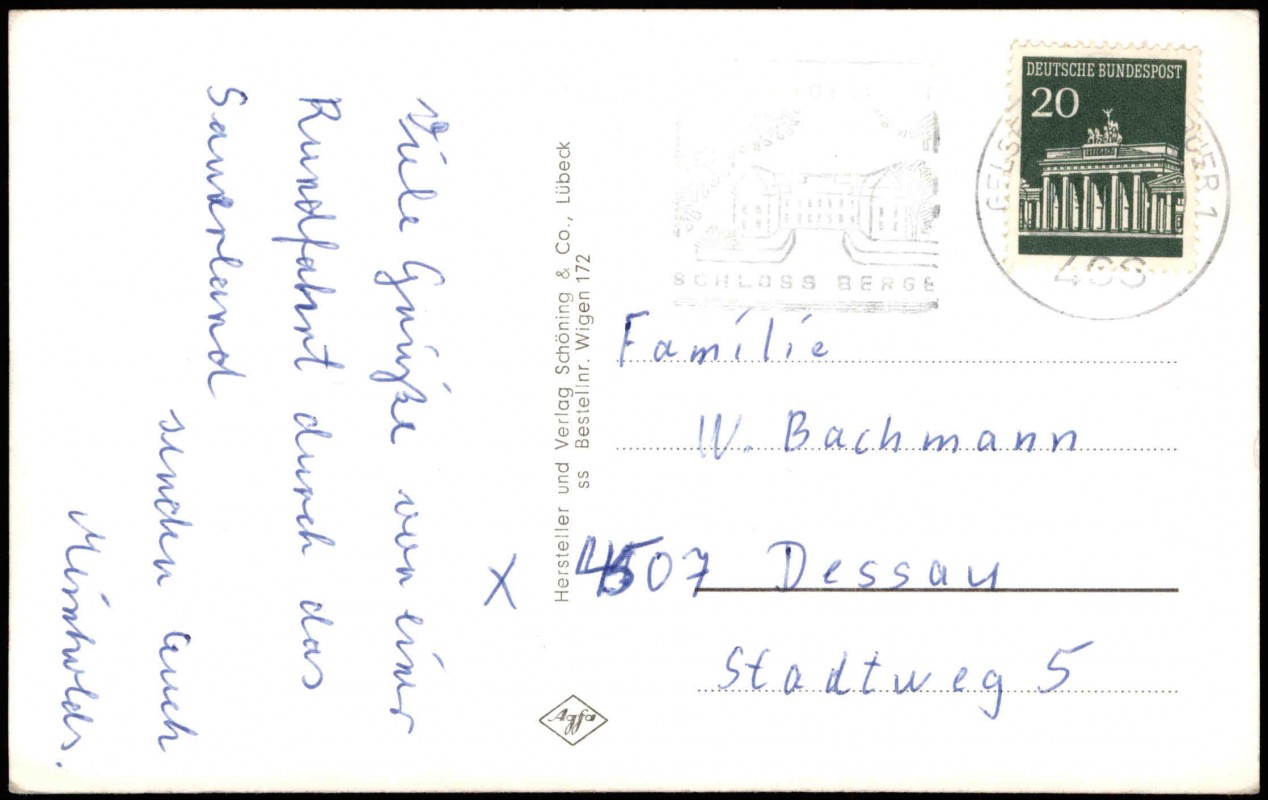 Viele Grüße von einer
Rundfahrt durch das
Sauerland
senden Euch
Meinholds.
X
Hersteller und Verlag Schöning & Co., Lübeck
ss Bestellnr. Wigen 172
Agfa
SCHLOSS BERGE
DEUTSCHE BUNDESPOST
20
Familie
W. Bachmann
4507 Dessau
Stadtweg 5